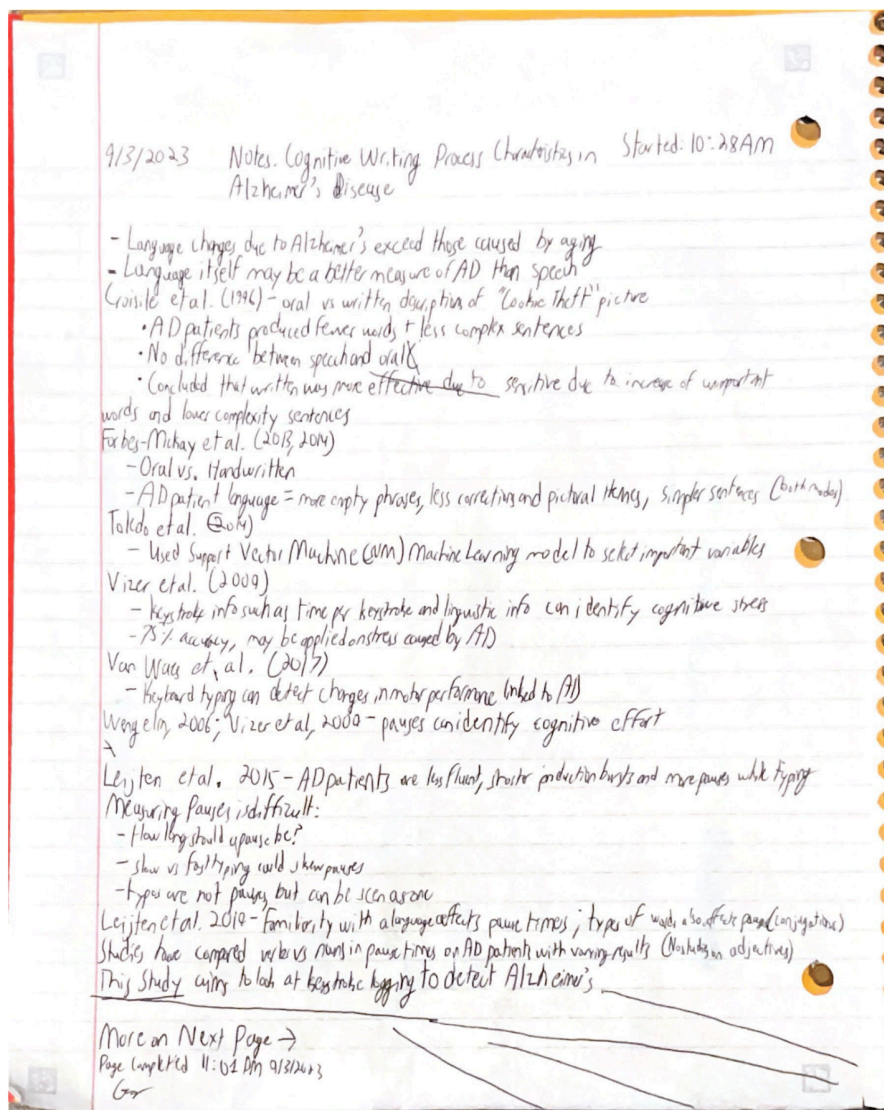 9/3/2023 Notes. Cognitive Writing Process Characteristics in Started: 10:28AM
Alzheimer's Disease
- Language changes due to Alzheimer's exceed those caused by aging
- Language itself may be a better measure of AD than speech
Croisile et al. (1996) - oral vs written description of "Cookie Theft" picture
• AD patients produced fewer words + less complex sentences
• No difference between speech and oral
• Concluded that written was more effective due to sensitive due to increase of unimportant
words and lower complexity sentences
Forbes-McKay et al. (2013, 2014)
- Oral vs. Handwritten
- AD patient language = more empty phrases, less corrections and pictoral themes, simpler sentences (both modes)
Toledo et al. (2014)
- Used Support Vector Machine (SVM) Machine Learning model to select important variables
Vizer et al. (2009)
- Keystroke info such as time per keystroke and linguistic info can identify cognitive stress
- 75% accuracy, may be applied on stress caused by AD
Van Waes et al. (2017)
- Keyboard typing can detect changes in motor performance linked to AD
Wengelin, 2006; Vizer et al, 2009 - pauses can identify cognitive effort
Leijten et al. 2015 - AD patients are less fluent, shorter production bursts and more pauses while typing
Measuring Pauses is difficult:
- How long should a pause be?
- slow vs fast typing could skew pauses
- typos are not pauses, but can be seen as one
Leijten et al. 2019 - Familiarity with a language affects pause times; types of words also affect pauses (conjugations)
Studies have compared verbs vs nouns in pause times on AD patients with varying results (No studies on adjectives)
This Study aims to look at keystroke logging to detect Alzheimer's
More on Next Page →
Page Completed 11:01 PM 9/3/2023